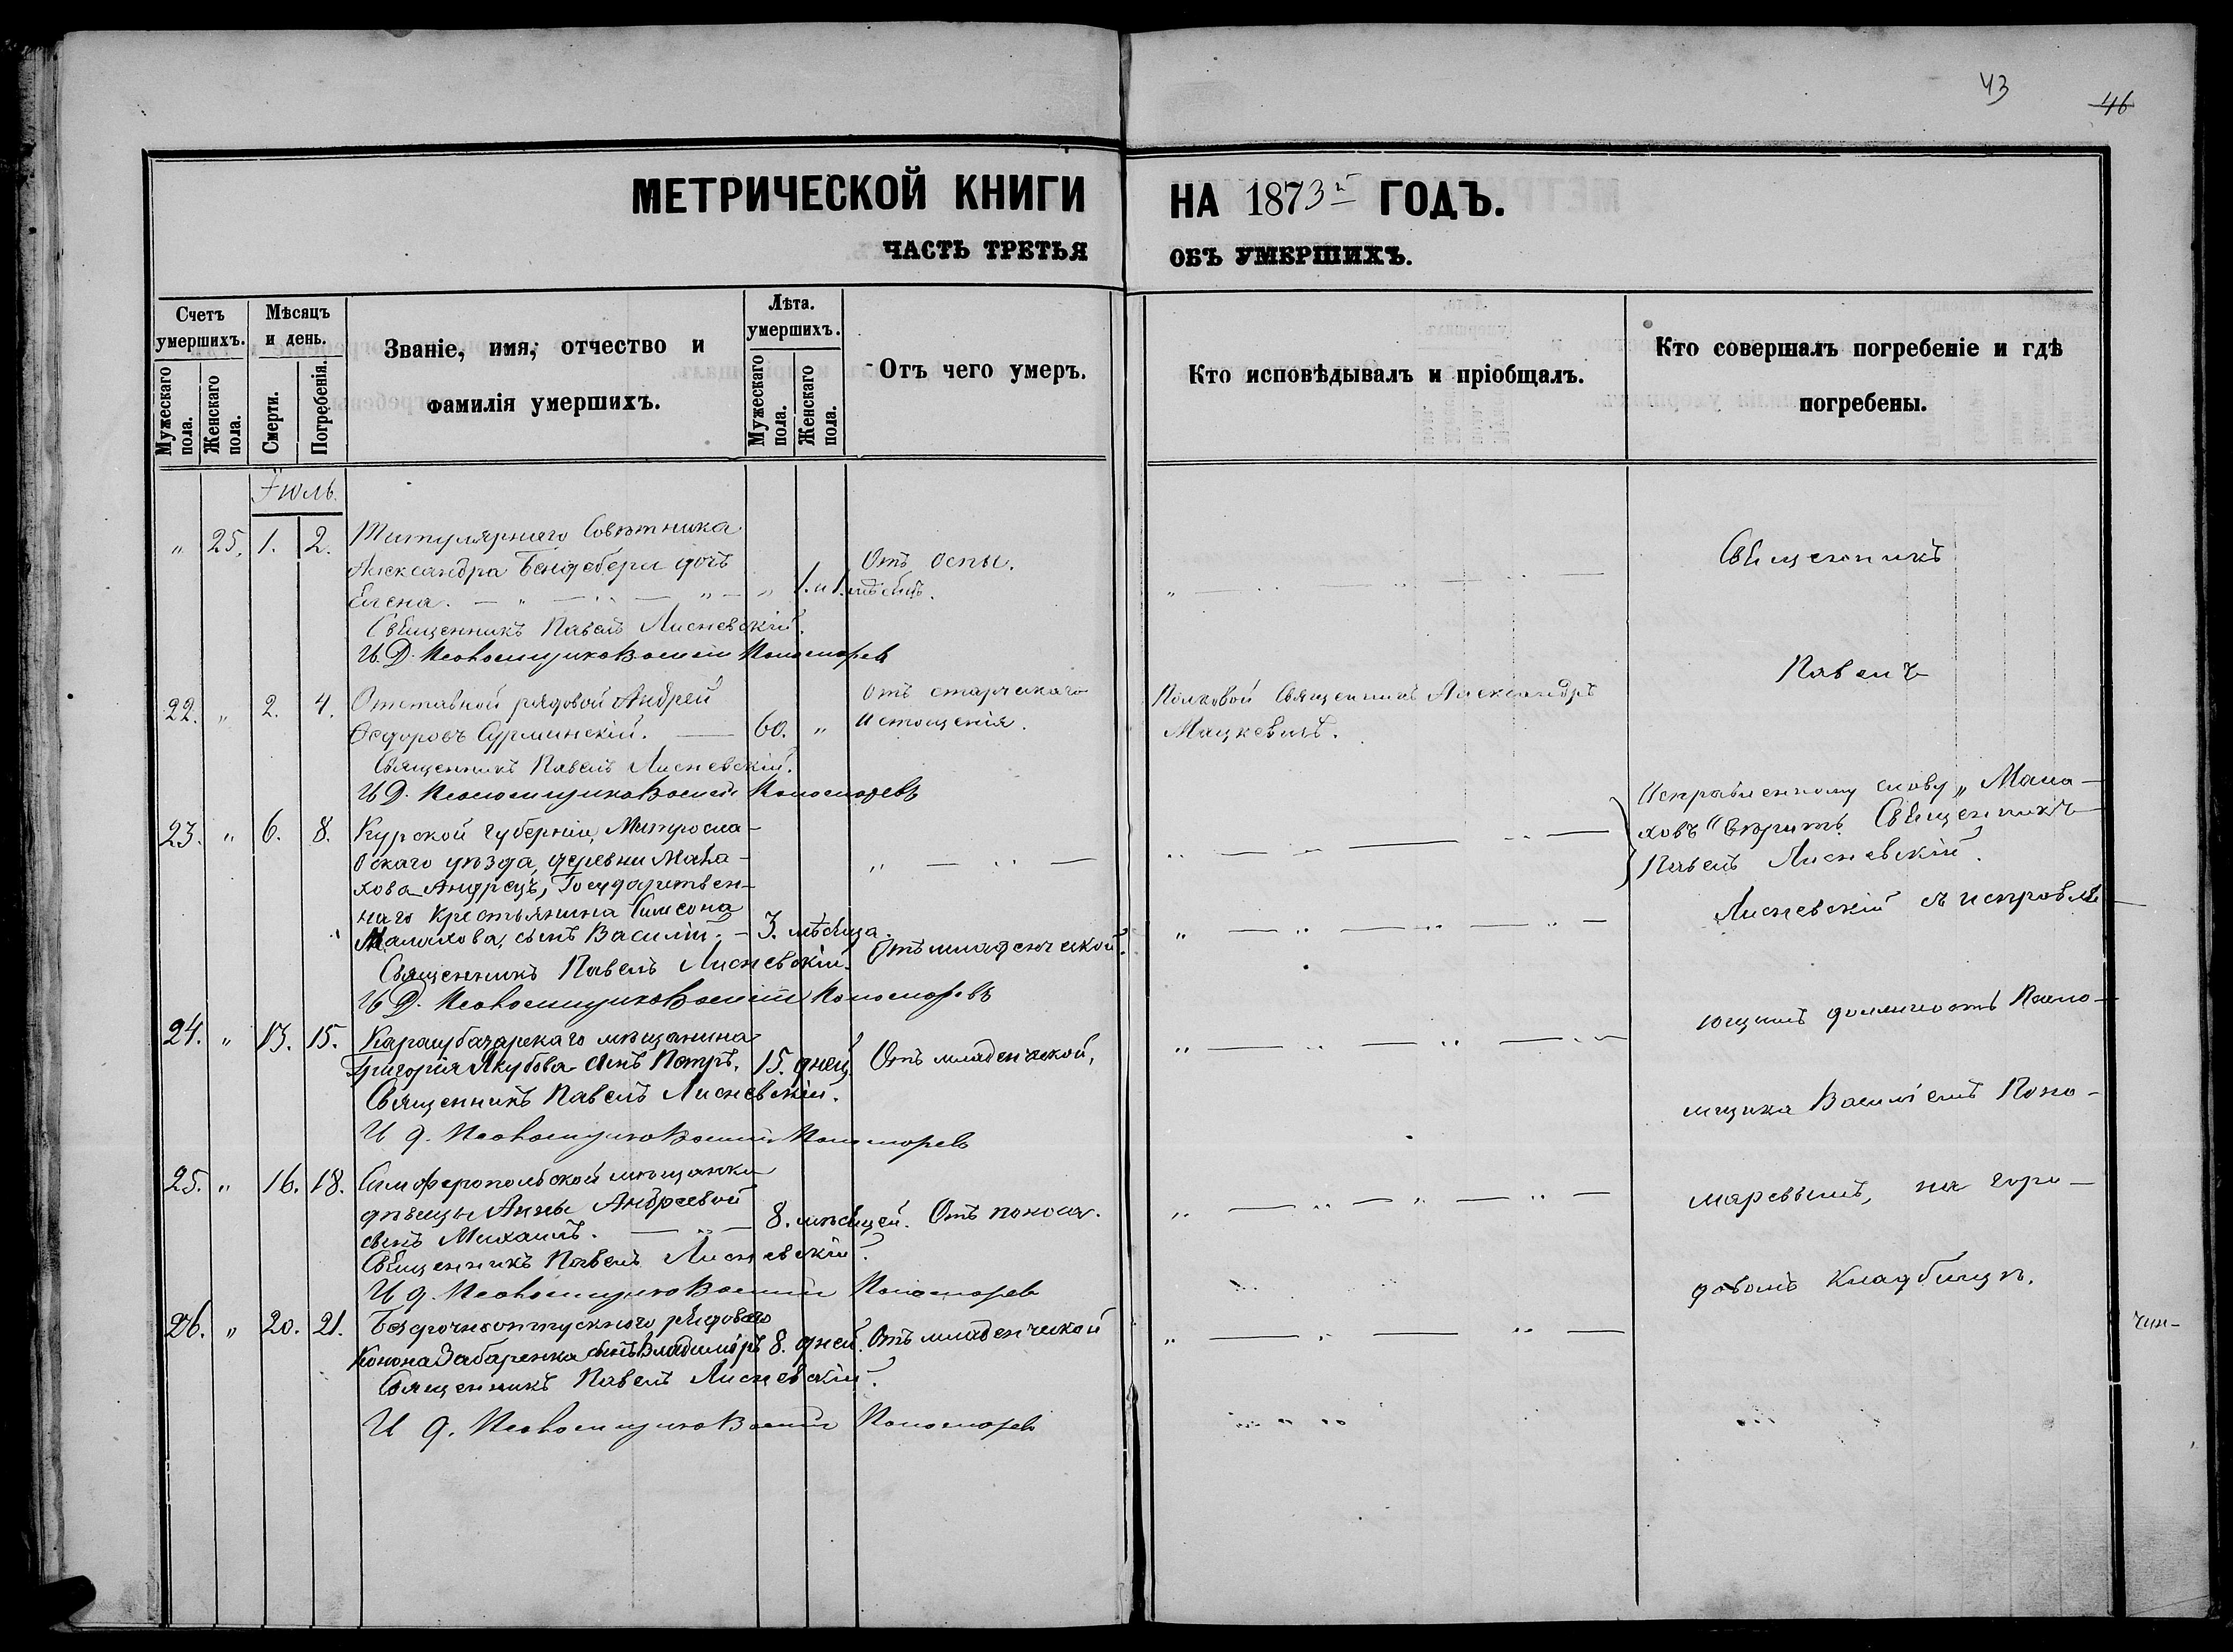 43
46
МЕТРИЧЕСКОЙ КНИГИ НА 1873й ГОДЪ.
ЧАСТЬ ТРЕТЬЯ ОБЪ УМЕРШИХЪ.
Счетъ умершихъ.
Мужескаго пола.
Женскаго пола.
Мѣсяцъ и день.
Смерти.
Погребенія.
Званіе, имя, отчество и
фамилія умершихъ.
Лѣта. умершихъ.
Мужескаго пола.
Женскаго пола.
Отъ чего умеръ.
Кто исповѣдывалъ и пріобщалъ.
Кто совершалъ погребеніе и гдѣ
погребены.
Іюль.
„ 25. 1. 2. Титулярнаго Совѣтника
Александра дочь Отъ оспы.
Елена. — „ — „ — „ — „ 1. и 1. мѣсяцъ.
Священникъ Павелъ Лисневскій.
И. Д. Псаломщика Василій Пономаревъ
22. „ 2. 4. Отставной рядовой Андрей Отъ старческаго
Ѳедоровъ Сурминскій. — 60. „ истощенія.
Священникъ Павелъ Лисневскій.
И. Д. Псаломщика Василій Пономаревъ
23. „ 6. 8. Курской губерніи,
уѣзда, деревни „ — „ —
Государствен-
наго крестьянина Симеона
Малахова, сынъ Василій. — 3. мѣсяца. Отъ младенческой.
Священникъ Павелъ Лисневскій.
И. Д. Псаломщика Василій Пономаревъ
24. „ 13. 15. Карасубазарскаго мѣщанина
Григорія Якубова сынъ Петръ. 15. дней. Отъ младенческой.
Священникъ Павелъ Лисневскій.
И. д. Псаломщика Василій Пономаревъ
25. „ 16. 18. Симферопольской мѣщанки
дѣвицы Анны Андреевой
сынъ Михаилъ. — „ — 8. мѣсяцей. Отъ поноса.
Священникъ Павелъ Лисневскій.
И. д. Псаломщика Василій Пономаревъ
26. „ 20. 21. Безсрочноотпускнаго рядоваго
Конона Забаренка сынъ Владиміръ 8. дней. Отъ младенческой
Священникъ Павелъ Лисневскій.
И. д. Псаломщика Василій Пономаревъ
Полковой Священникъ Александръ
Мацкевичъ.
Священникъ
Павелъ
Исправленному слову „Мала-
ховъ" вѣрить. Священникъ
Павелъ Лисневскій.
Лисневскій съ исправля-
ющимъ должность Псало-
мщика Василіемъ Поно-
маревымъ, на горо-
довомъ Кладбищѣ.
чин-